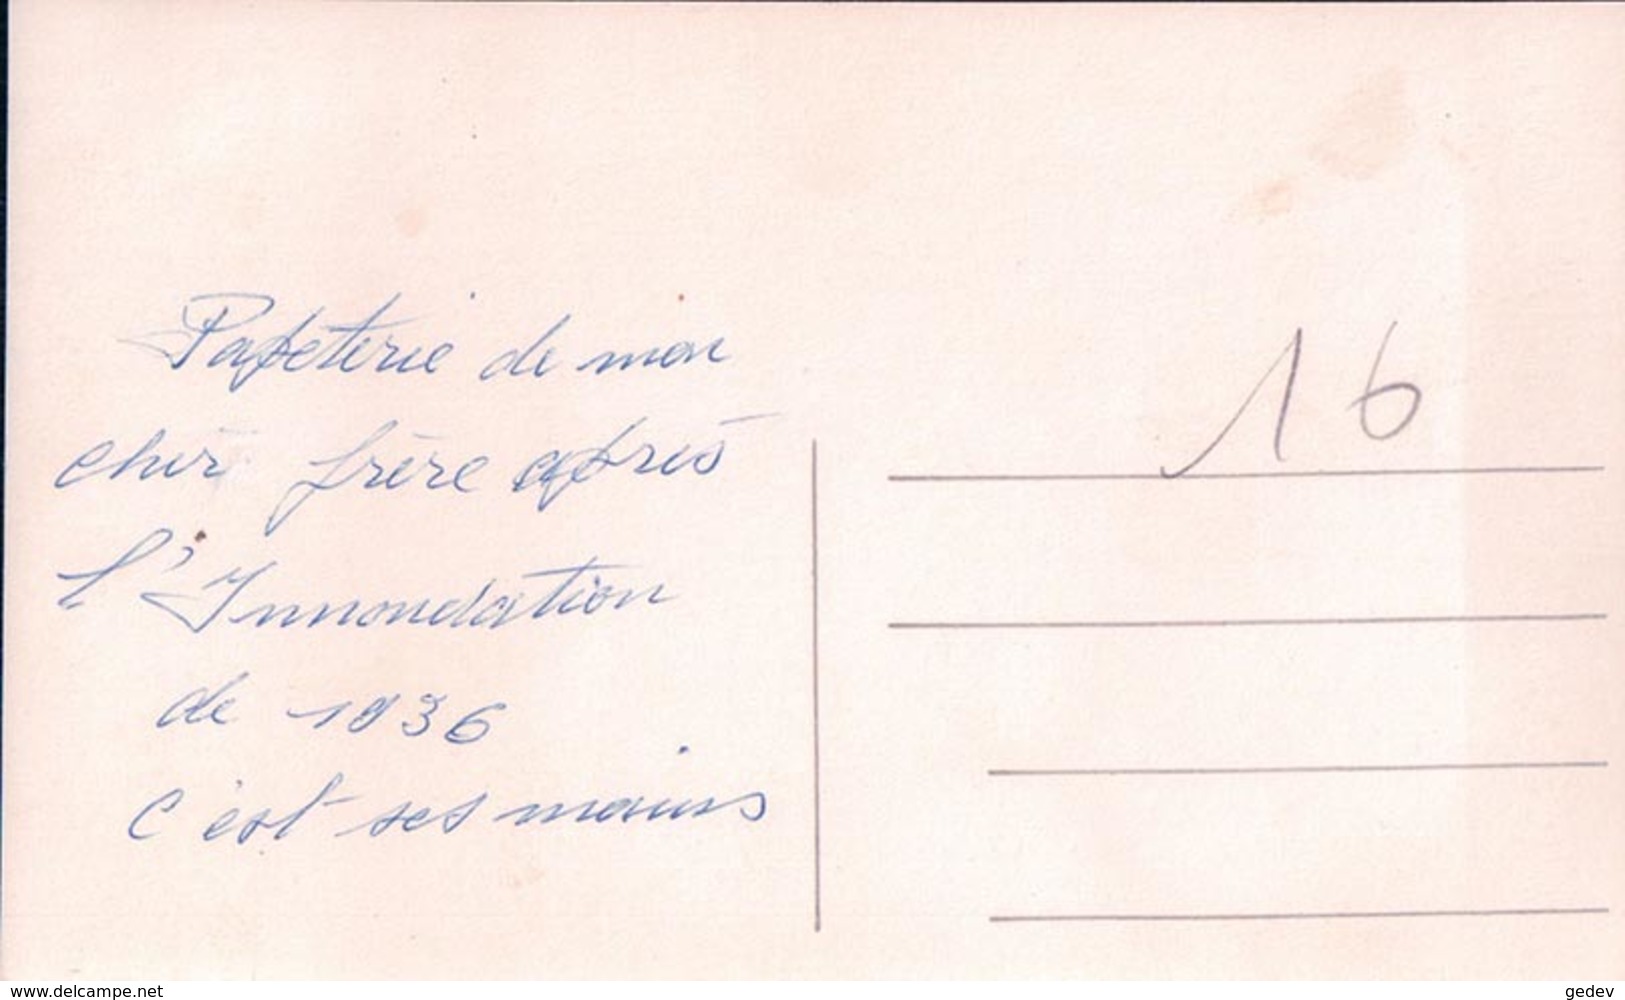 Papeterie de mon
cher frère après
l'Innondation
de 1936
c'est ses mains
16
www.delcampe.net
gedev